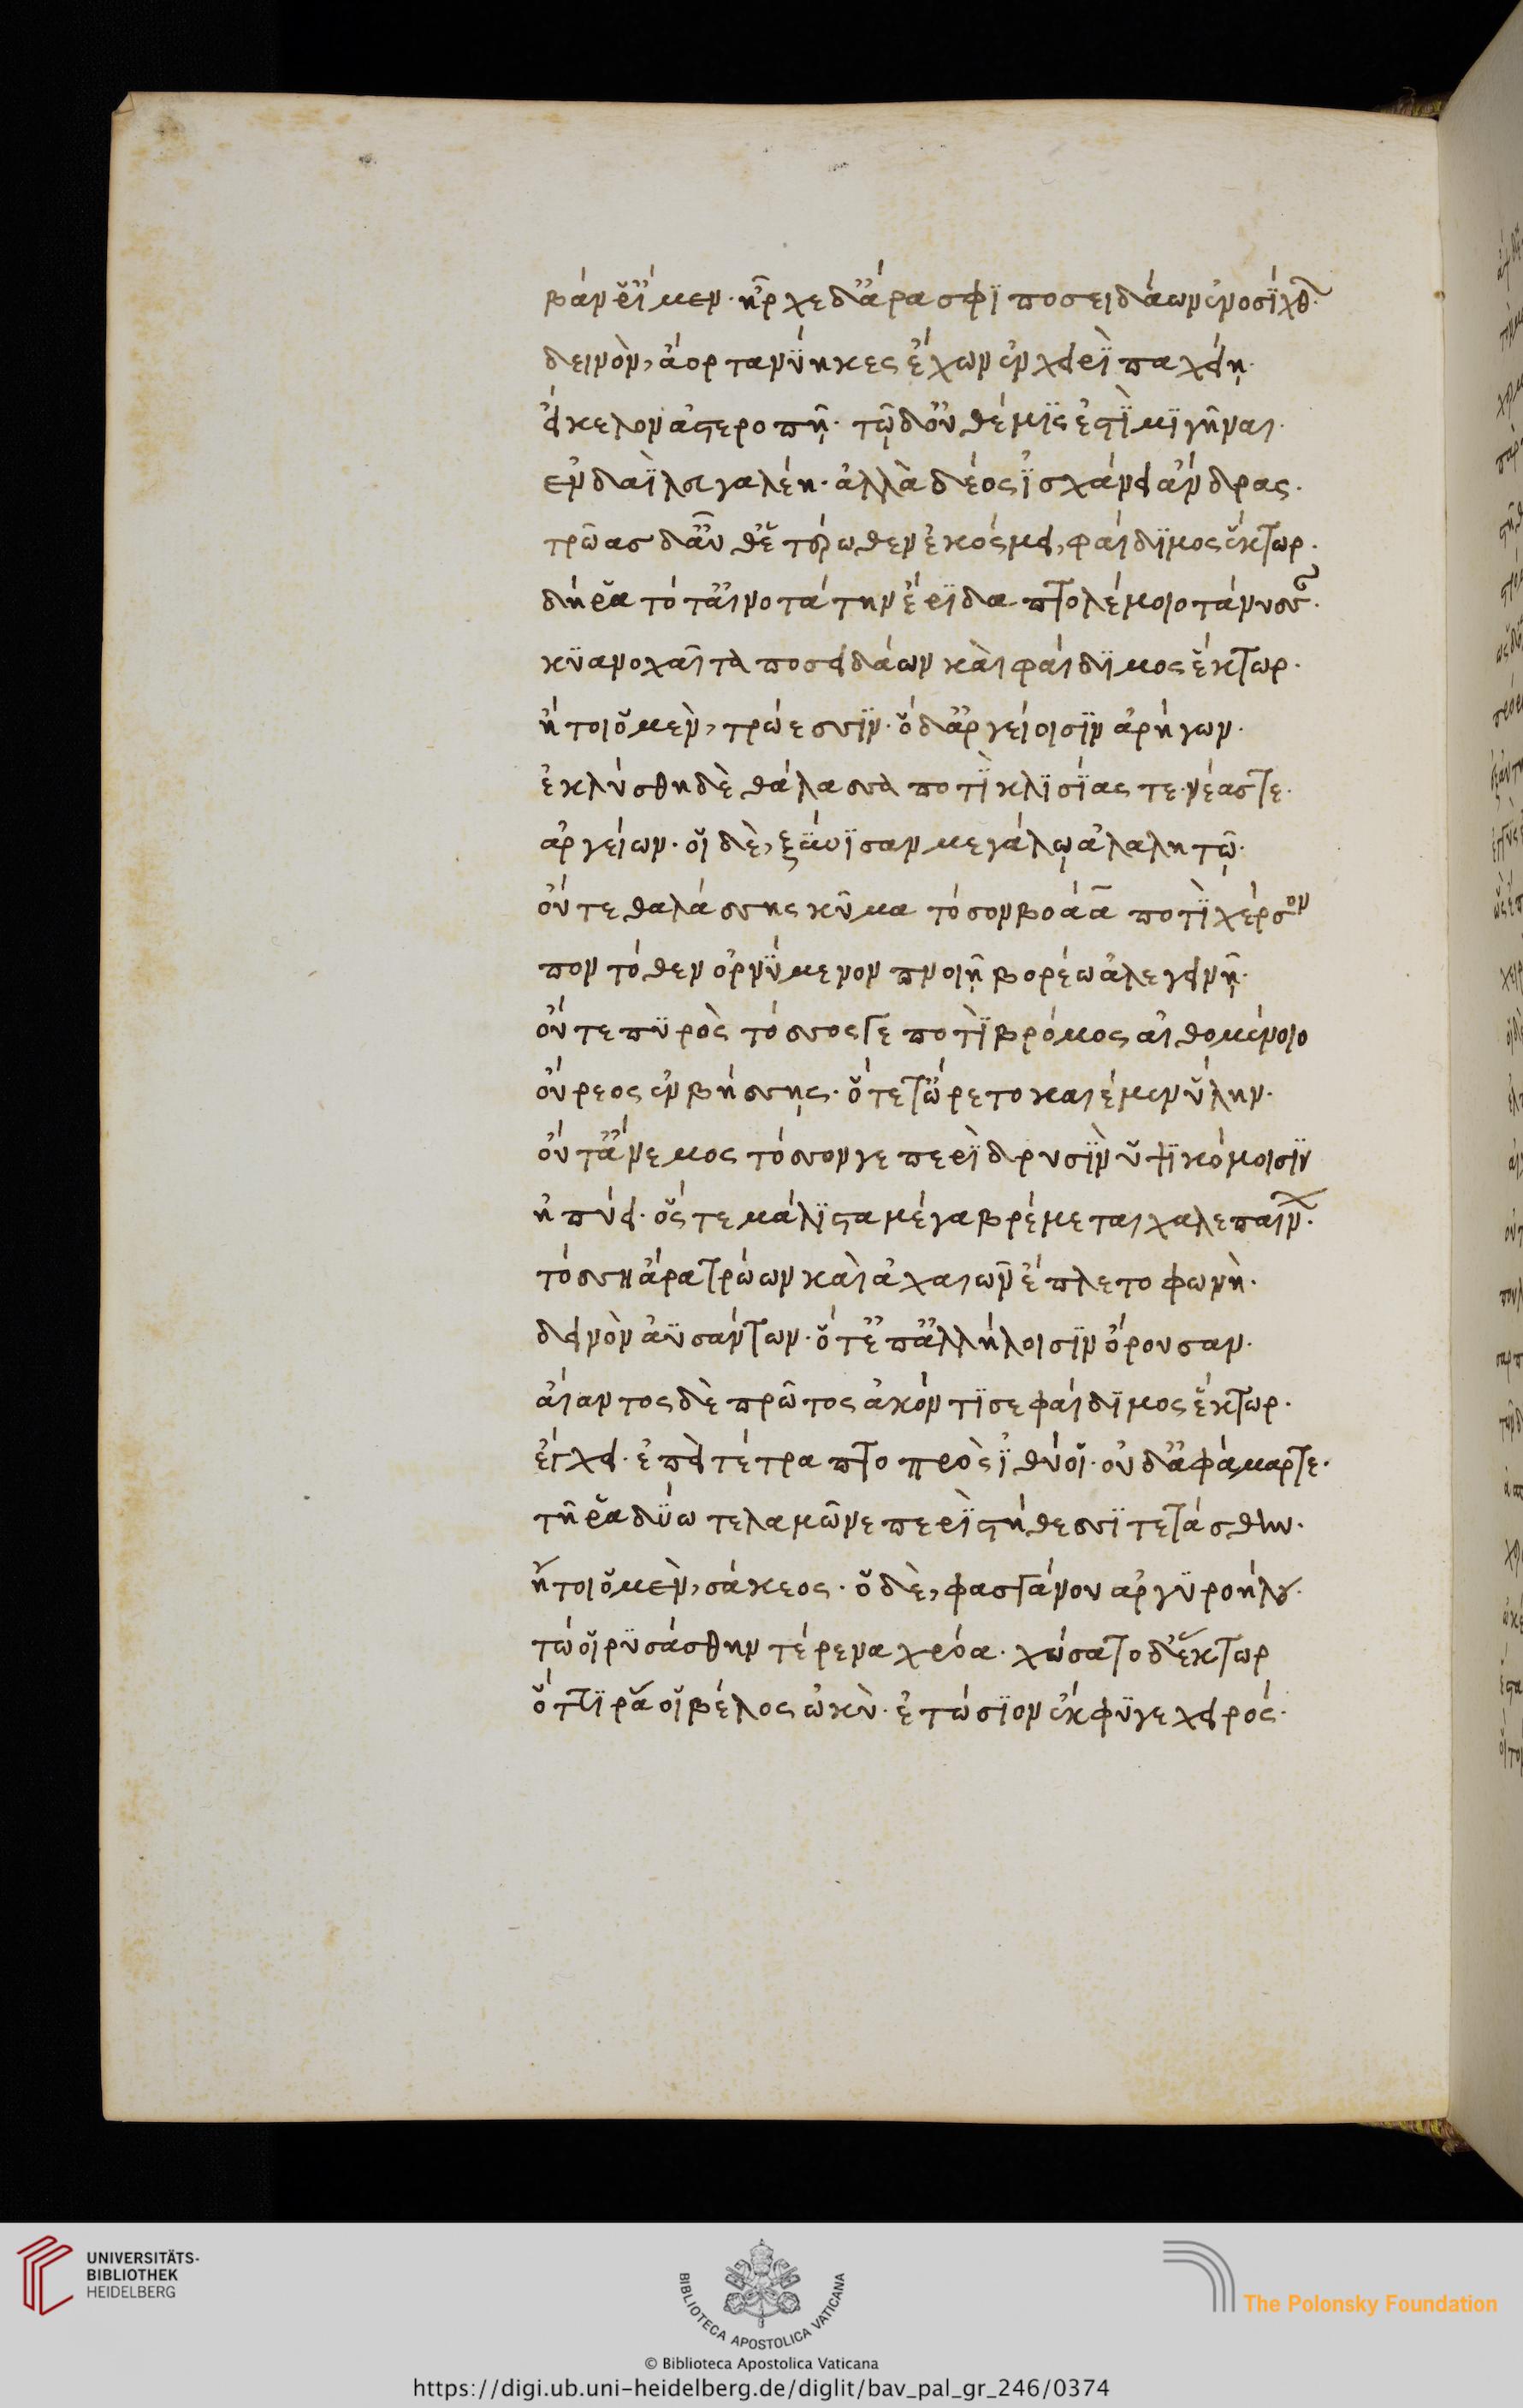 βάν ῥ' ἴμεν· ἦρχε δ' ἄρα σφι ποσειδάων ἐνοσίχθ
δεινὸν, ἄορ τανύηκες ἔχων ἐν χειρὶ παχείη·
εἴκελον ἀστεροπῇ· τῷ δ' οὐ θέμις ἐστὶ μιγῆναι·
ἐν δαῒ λευγαλέη· ἀλλὰ δέος ἰσχάνει ἄνδρας·
τρῶας δ' αὖθ' ἑτέρωθεν ἐκόσμει, φαίδιμος ἕκτωρ·
δή ῥα τότ' αἰνοτάτην ἔριδα πτολέμοιο τάνυσσ
κυανοχαῖτα ποσειδάων καὶ φαίδιμος ἕκτωρ·
ἤτοι ὁ μὲν, τρώεσσιν· ὁ δ' ἀργείοισιν ἀρήγων·
ἐκλύσθη δὲ θάλασσα ποτὶ κλισίας τε νέας τε·
ἀργείων· οἱ δὲ, ξύνισαν μεγάλῳ ἀλαλητῷ·
οὔτε θαλάσσης κῦμα τόσον βοάα ποτὶ χέρσον
ποντόθεν ὀρνύμενον πνοιῇ βορέω ἀλεγεινῇ·
οὔτε πυρὸς τόσσος γε ποτὶ βρόμος αἰθομένοιο
οὔρεος ἐν βήσσης· ὅτε τ' ὤρετο καιέμεν ὕλην·
οὔτ' ἄνεμος τόσσον γε περὶ δρυσὶν ὑψικόμοισιν
ἠπύει· ὅς τε μάλιστα μέγα βρέμεται χαλεπαίν
τόσση ἄρα τρώων καὶ ἀχαιῶν ἔπλετο φωνὴ·
δεινὸν ἀϋσάντων· ὅτ' ἐπ' ἀλλήλοισιν ὄρουσαν·
αἴαντος δὲ πρῶτος ἀκόντισε φαίδιμος ἕκτωρ·
ἔγχει· ἐπεὶ τέτραπτο πρὸς ἰθύ οἱ· οὐδ' ἀφάμαρτε·
τῇ ῥα δύω τελαμῶνε περὶ στήθεσσι τετάσθην·
ἤτοι ὁ μὲν, σάκεος· ὁ δὲ, φασγάνου ἀργυροήλου·
τώ οἱ ῥυσάσθην τέρενα χρόα· χώσατο δ' ἕκτωρ
ὅττι ῥά οἱ βέλος ὠκὺ· ἐτώσιον ἔκφυγε χειρός·
UNIVERSITÄTS-
BIBLIOTHEK
HEIDELBERG
BIBLIOTECA APOSTOLICA VATICANA
The Polonsky Foundation
© Biblioteca Apostolica Vaticana
https://digi.ub.uni-heidelberg.de/diglit/bav_pal_gr_246/0374